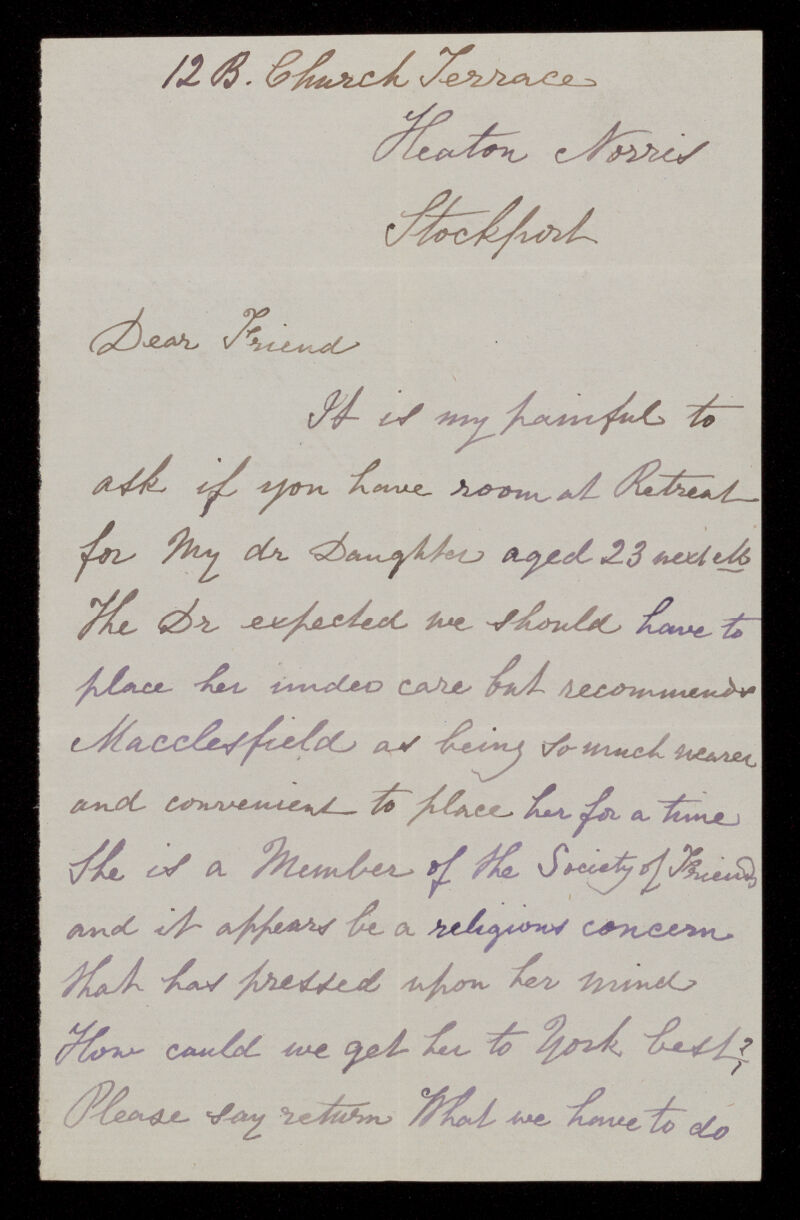 12 B. Church Terrace
Heaton Norris
Stockport
Dear Friend
It is my painful to
ask if you have room at Retreat
for My dr Daughter aged 23 next
The Dr expected we should have to
place her under care but recommends
Macclesfield as being so much nearer
and convenient to place her for a time
She is a Member of the Society of Friends
and it appears be a religious concern
that has pressed upon her mind
How could we get her to York best?
Please say return What we have to do